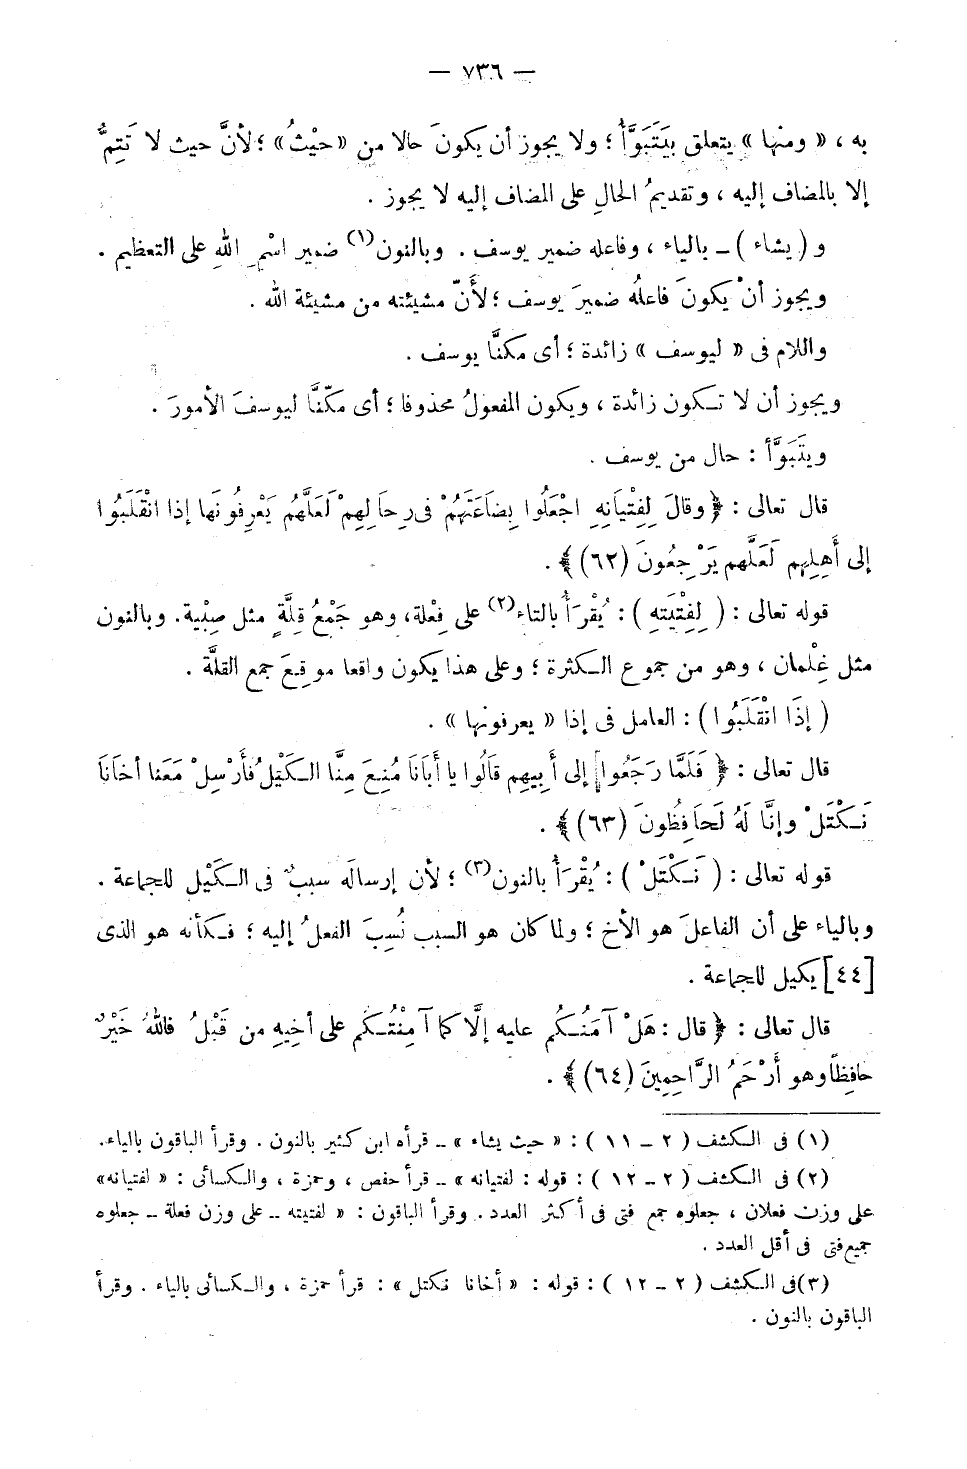 — ٧٣٦ —
به ، « ومنْها » يتعلق بيَتَبَوَّأُ ؛ ولا يجوز أن يكونَ حالا من «حيْثُ» ؛ لأنَّ حيث لا تَتِمُّ
إلا بالمضاف إليه ، وتقديمُ الحالِ على المضاف إليه لا يجوز .
و ( يشاء ) ــ بالياء ، وفاعله ضمير يوسف . وبالنون(١) ضمير اسْمِ اللّٰهِ على التعظيم .
ويجوز أنْ يكونَ فاعلُه ضميرَ يوسف ؛ لأَنّ مشيئته من مشيئة الله .
واللام فى « ليوسف » زائدة ؛ أى مكنَّا يوسف .
ويجوز أن لا تـكون زائدة ، ويكون المفعولُ محذوفا ؛ أى مكّنَّا ليوسفَ الأمورَ .
ويتَبَوَّأ : حال من يوسف .
قال تعالى : ﴿ وقالَ لِفِتْيَانِهِ اجْعَلُوا بِضَاعَتَهُمْ فى رِحَالِهِمْ لَعَلَّهُم يَعْرِفُونَها إذا انْقَلَبُوا
إلى أَهِلِهِم لَعَلَّهم يَرْجِعُونَ (٦٢) ﴾ .
قوله تعالى : ( لِفِتْيَتِهِ ) : يُقْرَأُ بالتاء(٢) على فِعْلة، وهو جَمْعُ قِلَّةٍ مثل صِبْية. وبالنون
مثل غِلْمان ، وهو من جموع الـكثرة ؛ وعلى هذا يكون واقعا موقعَ جمع القلَّة .
( إِذَا انْقَلَبُوا ) : العامل فى إذا « يعرفونها » .
قال تعالى : ﴿ فَلَمَّا رَجَعُوا إلى أَبِيهِم قَالُوا يا أَبَانَا مُنِعَ مِنَّا الـكَيْلُ فأَرْسِلْ مَعَنا أخَانَا
نَـكْتَلْ وإنَّا لَهُ لَحَافِظُونَ (٦٣) ﴾ .
قوله تعالى : ( نَـكْتَلْ ) : يُقْرَأُ بالنون(٣) ؛ لأن إرسالَه سببٌ فى الـكَيْلِ للجماعة .
وبالياء على أن الفاعلَ هو الأخ ؛ ولما كان هو السبب نُسِبَ الفعلُ إليه ؛ فـكأنه هو الذى
[٤٤] يكيل للجماعة .
قال تعالى : ﴿ قال : هَلْ آمَنُـكُم عليه إلَّا كما آمِنْتُـكم على أخِيهِ من قَبْلُ فاللهُ خَيْرٌ
حافِظًا وهو أَرْحَمُ الرَّاحِمِينَ (٦٤) ﴾ .
(١) فى الـكشف ( ٢ ــ ١١ ) : « حيث يشاء » ــ قرأه ابن كثير بالنون . وقرأ الباقون بالياء.
(٢) فى الـكشف ( ٢ ــ ١٢ ) : قوله : لفتيانه » ــ قرأ حفص ، وحمزة ، والـكسائى : « لفتيانه»
على وزن فعلان ، جعلوه جمع فتى فى أكثر العدد . وقرأ الباقون : « لفتيته ــ على وزن فعلة ــ جعلوه
جميع فتى فى أقل العدد .
(٣) فى الـكشف ( ٢ ــ ١٢ ) : قوله : « أخانا نكتل » : قرأ حمزة ، والـكسائى بالياء . وقرأ
الباقون بالنون .